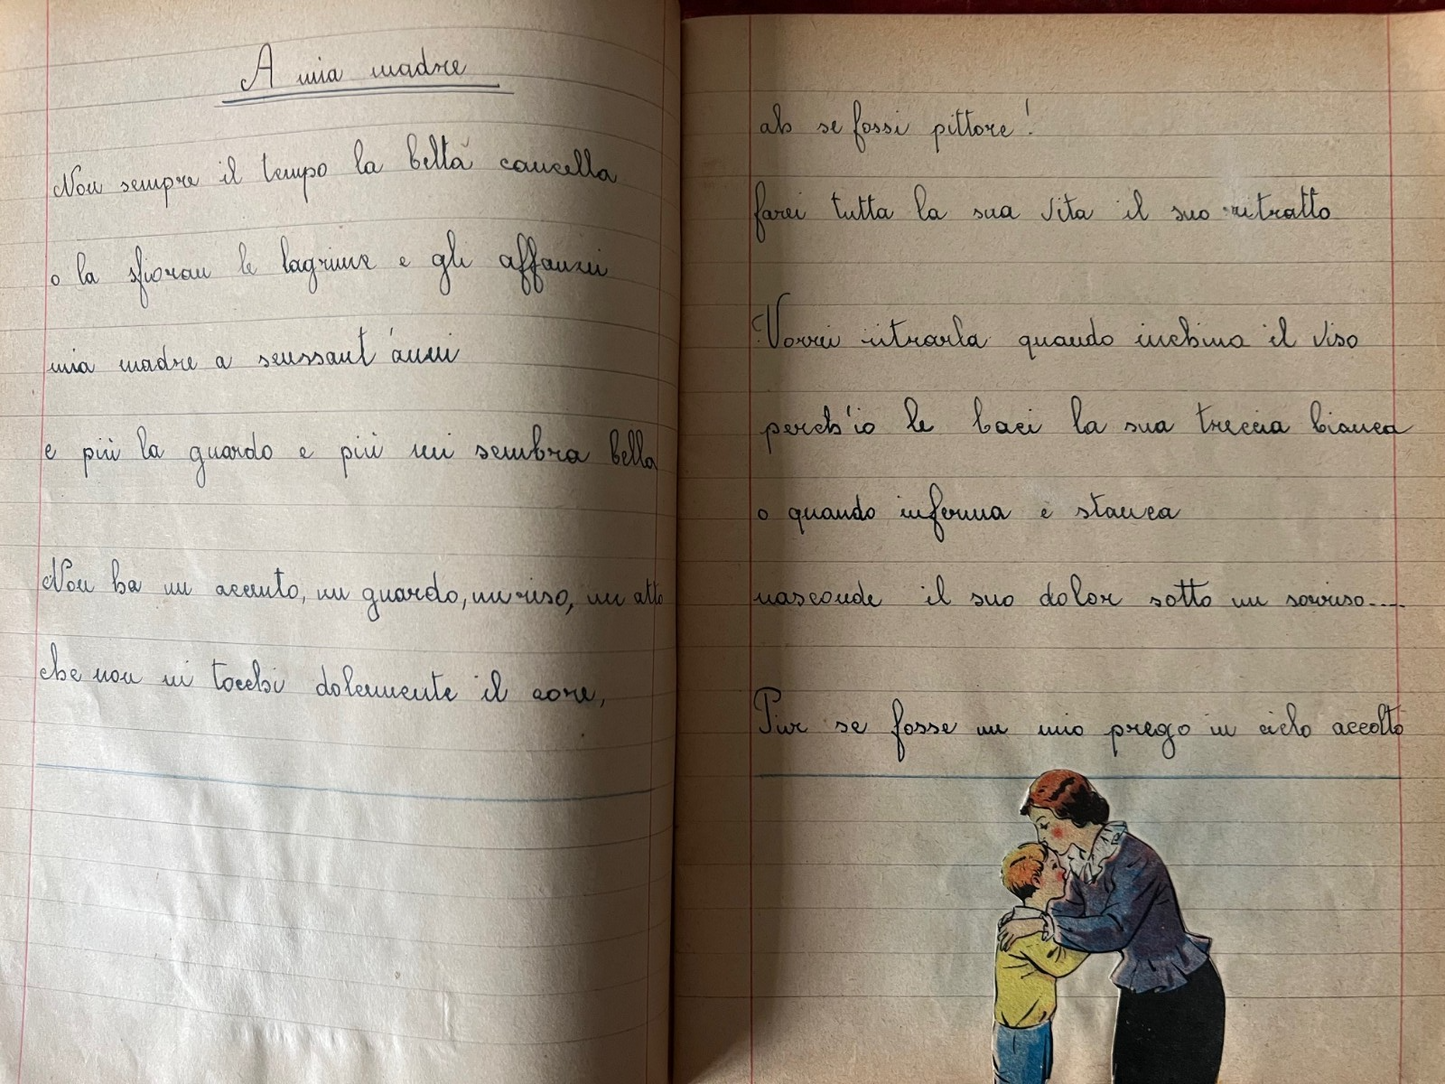 A mia madre
Non sempre il tempo la beltà cancella
o la sfioran le lagrime e gli affanni
mia madre a senssant'anni
e più la guardo e più mi sembra bella
Non ha un accento, un guardo, un riso, un atto
che non mi tocchi dolcemente il core,
ah se fossi pittore!
farei tutta la sua vita il suo ritratto
Vorrei ritrarla quando inchina il viso
perch'io le baci la sua treccia bianca
o quando inferma e stanca
nasconde il suo dolor sotto un sorriso....
Pur se fosse un mio prego in cielo accolto